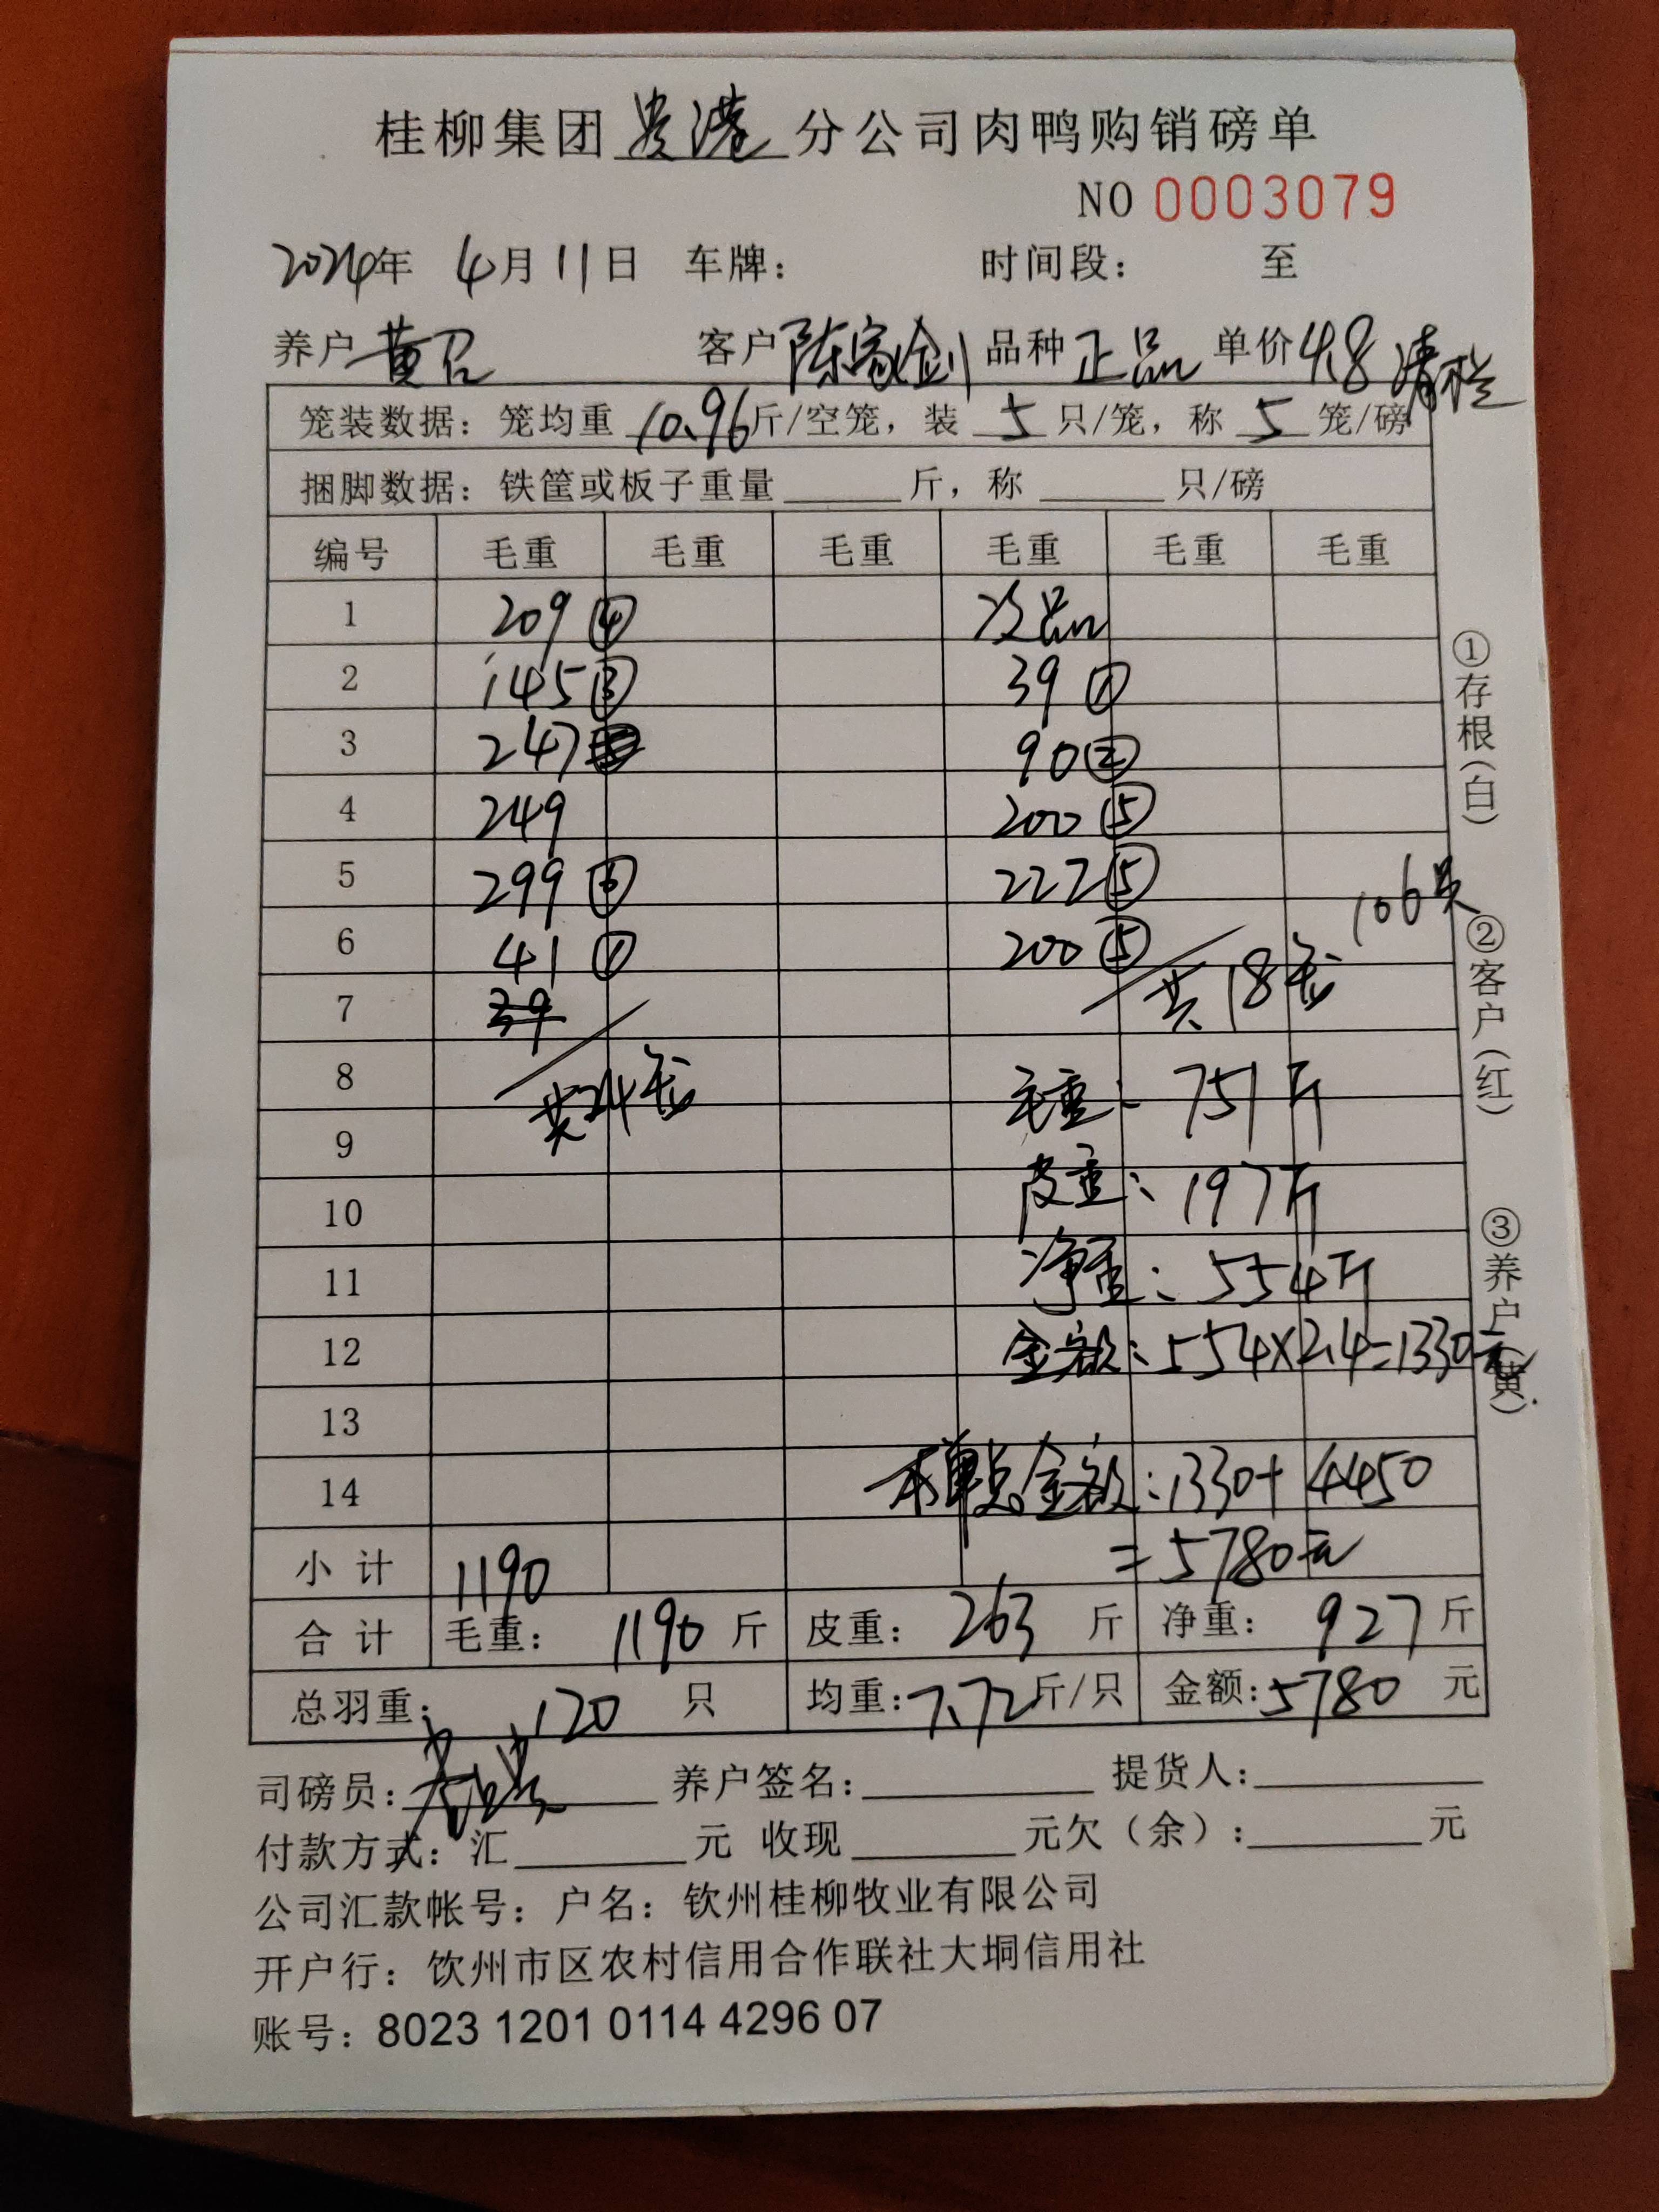 桂柳集团贵港分公司肉鸭购销磅单
NO 0003079
2024年 4月11日 车牌： 时间段： 至
养户 黄召 客户 陈家剑 品种 正品 单价 4.8 清栏
笼装数据：笼均重 10.96 斤/空笼，装 5 只/笼，称 5 笼/磅
捆脚数据：铁筐或板子重量 斤，称 只/磅
编号 毛重 毛重 毛重 毛重 毛重 毛重
1 209 ④ 次品
2 145 ③ 39 ①
3 247 90 ②
4 249 200 ⑤
5 299 ⑥ 222 ⑤ 106只
6 41 ① 200 ⑤
7 39 共18笼
8 共24笼 毛重：751斤
9
10 皮重：197斤
11 净重：554斤
12 金额：554×2.4=1330元
13
14 本单总金额：1330+4450
小计 1190 =5780元
合计 毛重： 1190 斤 皮重： 263 斤 净重： 927 斤
总羽重： 120 只 均重：7.72斤/只 金额：5780 元
司磅员： 养户签名： 提货人：
付款方式：汇 元 收现 元欠（余）： 元
公司汇款帐号：户名：钦州桂柳牧业有限公司
开户行：饮州市区农村信用合作联社大垌信用社
账号：8023 1201 0114 4296 07
①存根（白）
②客户（红）
③养户（黄）